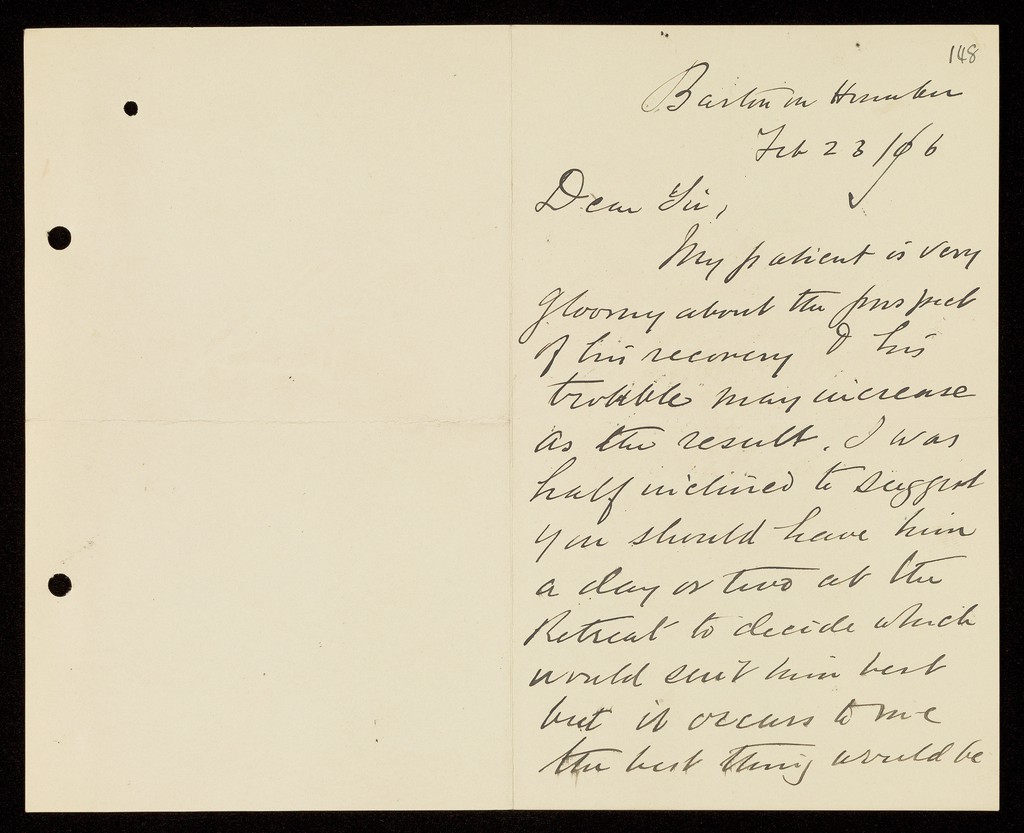 148
Barton on Humber
Feb 23/06
Dear Sir,
My patient is very
gloomy about the prospect
of his recovery & his
trouble may increase
as the result. I was
half inclined to suggest
you should have him
a day or two at the
Retreat to decide which
would suit him best
but it occurs to me
the best thing would be